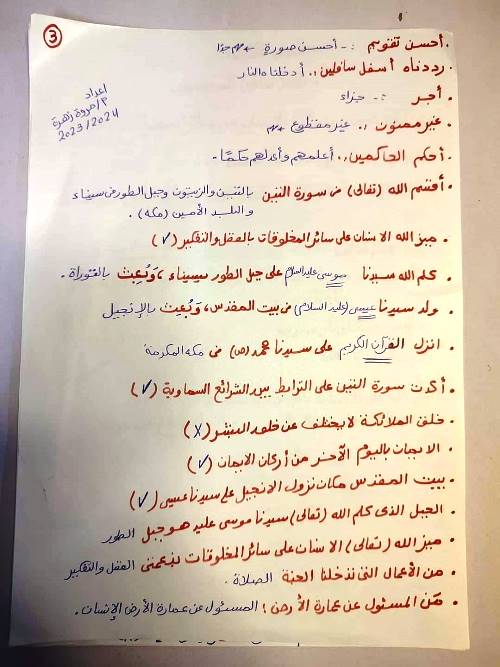 ٣
. أحسن تقويم :- أحسن صورة ← مهم جدا
. رددناه أسفل سافلين :. أدخلناه النار
اعداد
م/مروة زهرة
2023/2024
. أجر :- جزاء
. غير ممنون :. غير مقطوع ← مهم
. أحكم الحاكمين :. أعلمهم وأعدلهم حكمًا .
. أقسم الله (تعالى) فى سورة التين بالتين والزيتون وجبل الطور فى سيناء
والبلد الأمين (مكة) .
. ميز الله الانسان على سائر المخلوقات بالعقل والتفكير (✓)
. كلم الله سيدنا موسى عليه السلام على جبل الطور بسيناء ، وبُعِثَ بالتوراة .
. ولد سيدنا عيسى (عليه السلام) فى بيت المقدس، وَبُعِثَ بالإنجيل
. انزل القرآن الكريم على سيدنا محمد (ص) فى مكة المكرمة
. أكدت سورة التين على الترابط بين الشرائع السماوية (✓)
. خلق الملائكة لا يختلف عن خلق البشر (X)
. الايمان باليوم الآخر من أركان الايمان (✓)
. بيت المقدس مكان نزول الانجيل على سيدنا عيسى (✓)
. الجبل الذى كلم الله (تعالى) سيدنا موسى عليه هو جبل الطور
. ميز الله (تعالى) الانسان على سائر المخلوقات بنعمتى العقل والتفكير
. من الأعمال التى تدخلنا الجنة الصلاة .
. مَن المسئول عن عمارة الأرض ؟ المسئول عن عمارة الأرض الإنسان .